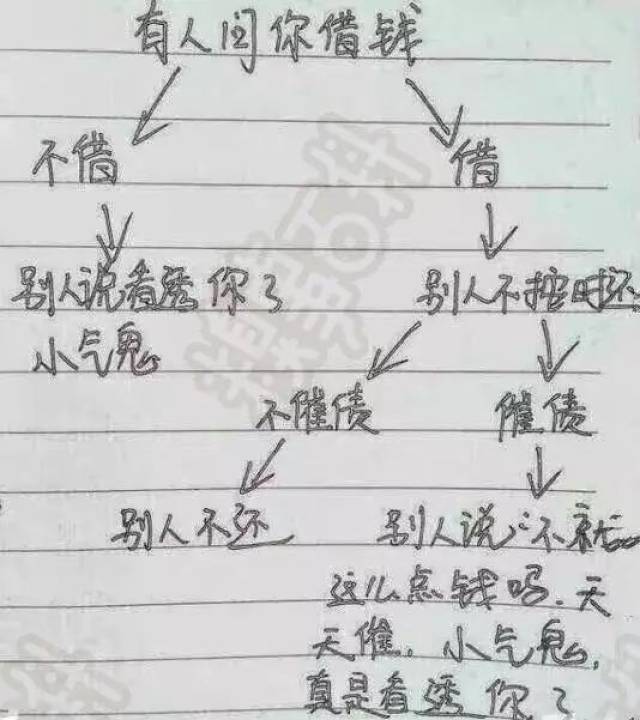 有人问你借钱
不借
借
别人说看透你了
小气鬼
别人不按时还
不催债
催债
别人不还
别人说:不就
这么点钱吗,天
天催,小气鬼,
真是看透你了